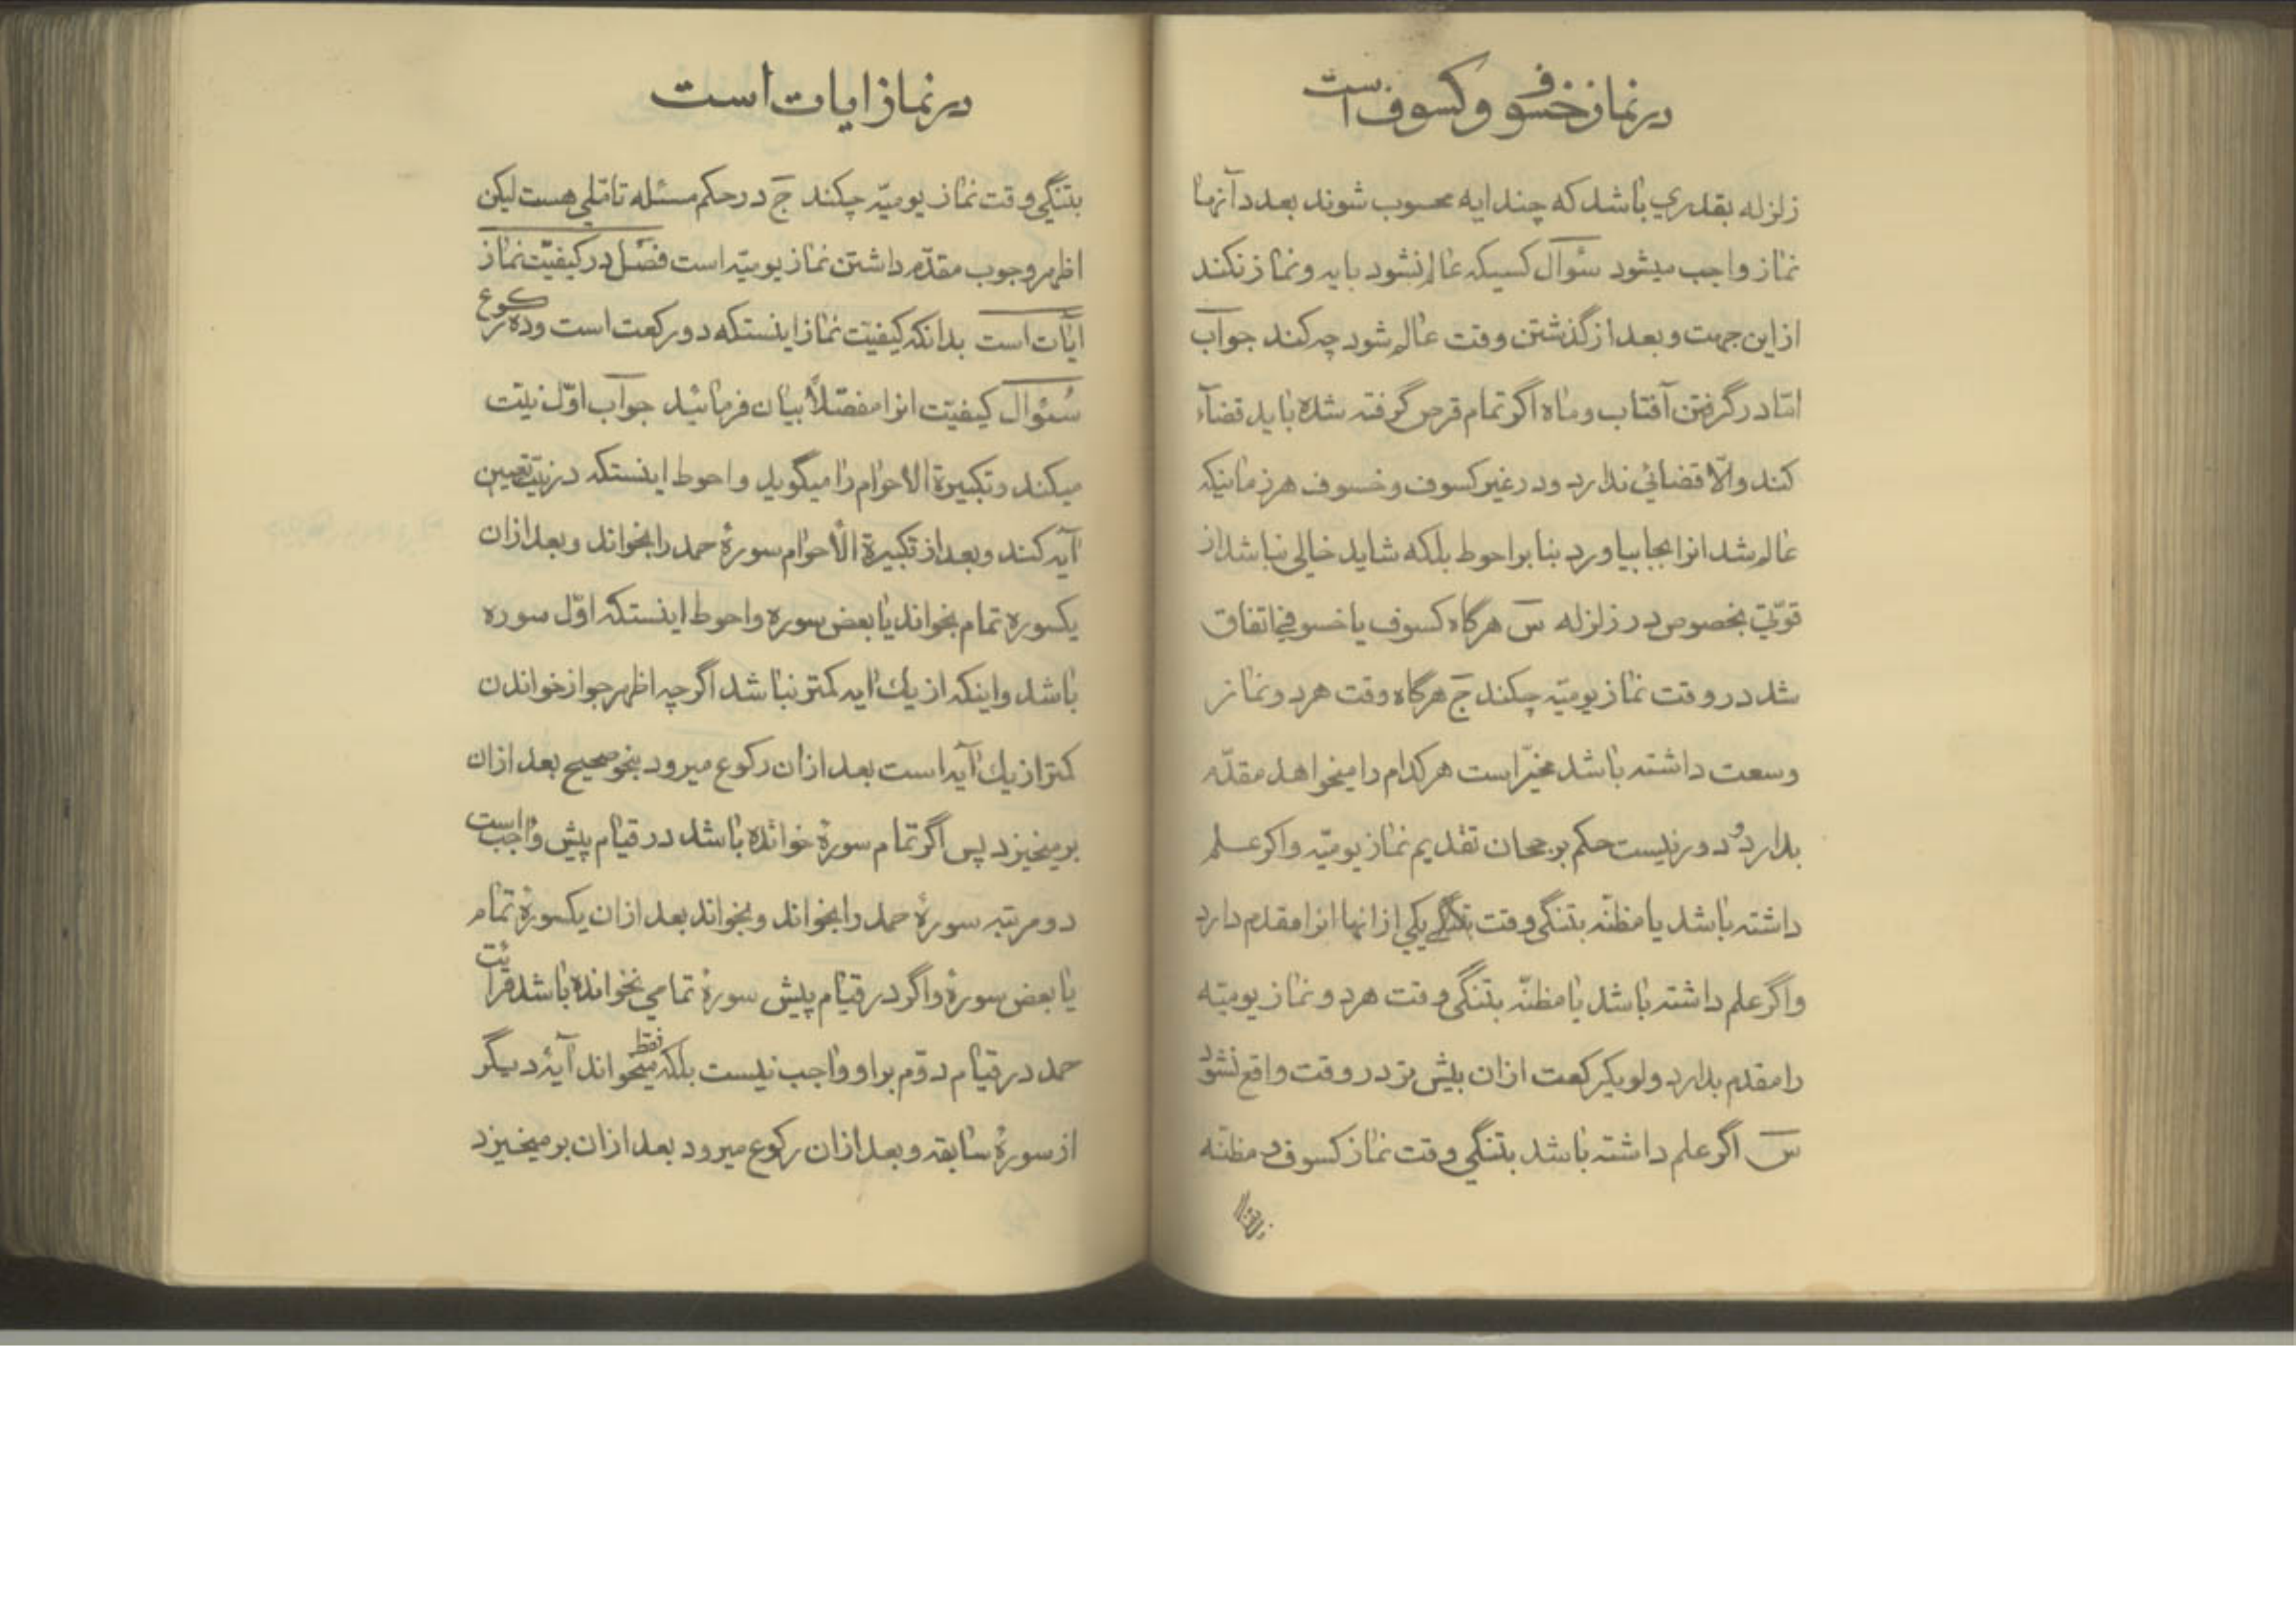 در نماز خسوف و کسوف است
زلزله بقدری باشد که چند ایه محسوب شوند بعدد آنها
نماز واجب میشود سؤال کسیکه عالم نشود بایه و نماز نکند
از این جهت و بعد از گذشتن وقت عالم شود چه کند جواب
امّا در گرفتن آفتاب و ماه اگر تمام قرص گرفته شده باید قضآء
کند و الّا قضائی ندارد و در غیر کسوف و خسوف هر زمانیکه
عالم شد انرا بجا بیاورد بنا بر احوط بلکه شاید خالی نباشد از
قوّتی بخصوص در زلزله س هرگاه کسوف یا خسوفی اتفاق
شد در وقت نماز یومیّه چکند ج هرگاه وقت هر دو نماز
وسعت داشته باشد مخیّر است هر کدام را میخواهد مقدّم
بدارد و دور نیست حکم برجحان تقدیم نماز یومیّه و اکر علم
داشته باشد یا مظنّه بتنگی وقت یکی از انها انرا مقدم دارد
و اگر علم داشته باشد یا مظنّه بتنگی وقت هر دو نماز یومیّه
را مقدم بدارد ولو یکرکعت ازان بیش تر در وقت واقع نشود
س اگر علم داشته باشد بتنگی وقت نماز کسوف و مظنّه
در نماز ایات است
بتنگی وقت نماز یومیّه چکند ج در حکم مسئله تامّلی هست لیکن
اظهر وجوب مقدّم داشتن نماز یومیّه است فصل در کیفیّت نماز
ایات است بدانکه کیفیّت نماز اینستکه دو رکعت است و ده رکوع
سئوال کیفیّت انرا مفصّلاً بیان فرمائید جواب اوّل نیّت
میکند و تکبیرة الاحرام را میگوید و احوط اینستکه در نیّت تعیین
آیه کند و بعد از تکبیرة الاحرام سورهٔ حمد را بخواند و بعد ازان
یکسوره تمام بخواند یا بعض سوره و احوط اینستکه اوّل سوره
باشد و اینکه از یك ایه کمتر نباشد اگر چه اظهر جواز خواندن
کمتر از یك آیه است بعد ازان رکوع میرود بنحو صحیح بعد ازان
برمیخیزد پس اگر تمام سورهٔ خوانده باشد در قیام پیش واجب است
دو مرتبه سورهٔ حمد را بخواند و بخواند بعد ازان یکسورهٔ تمام
یا بعض سورهٔ و اگر در قیام پیش سورهٔ تمامی نخوانده باشد قرائت
حمد در قیام دوّم براو واجب نیست بلکه میخواند فقط آیهٔ دیگر
از سورهٔ سابقه و بعد ازان رکوع میرود بعد ازان برمیخیزد